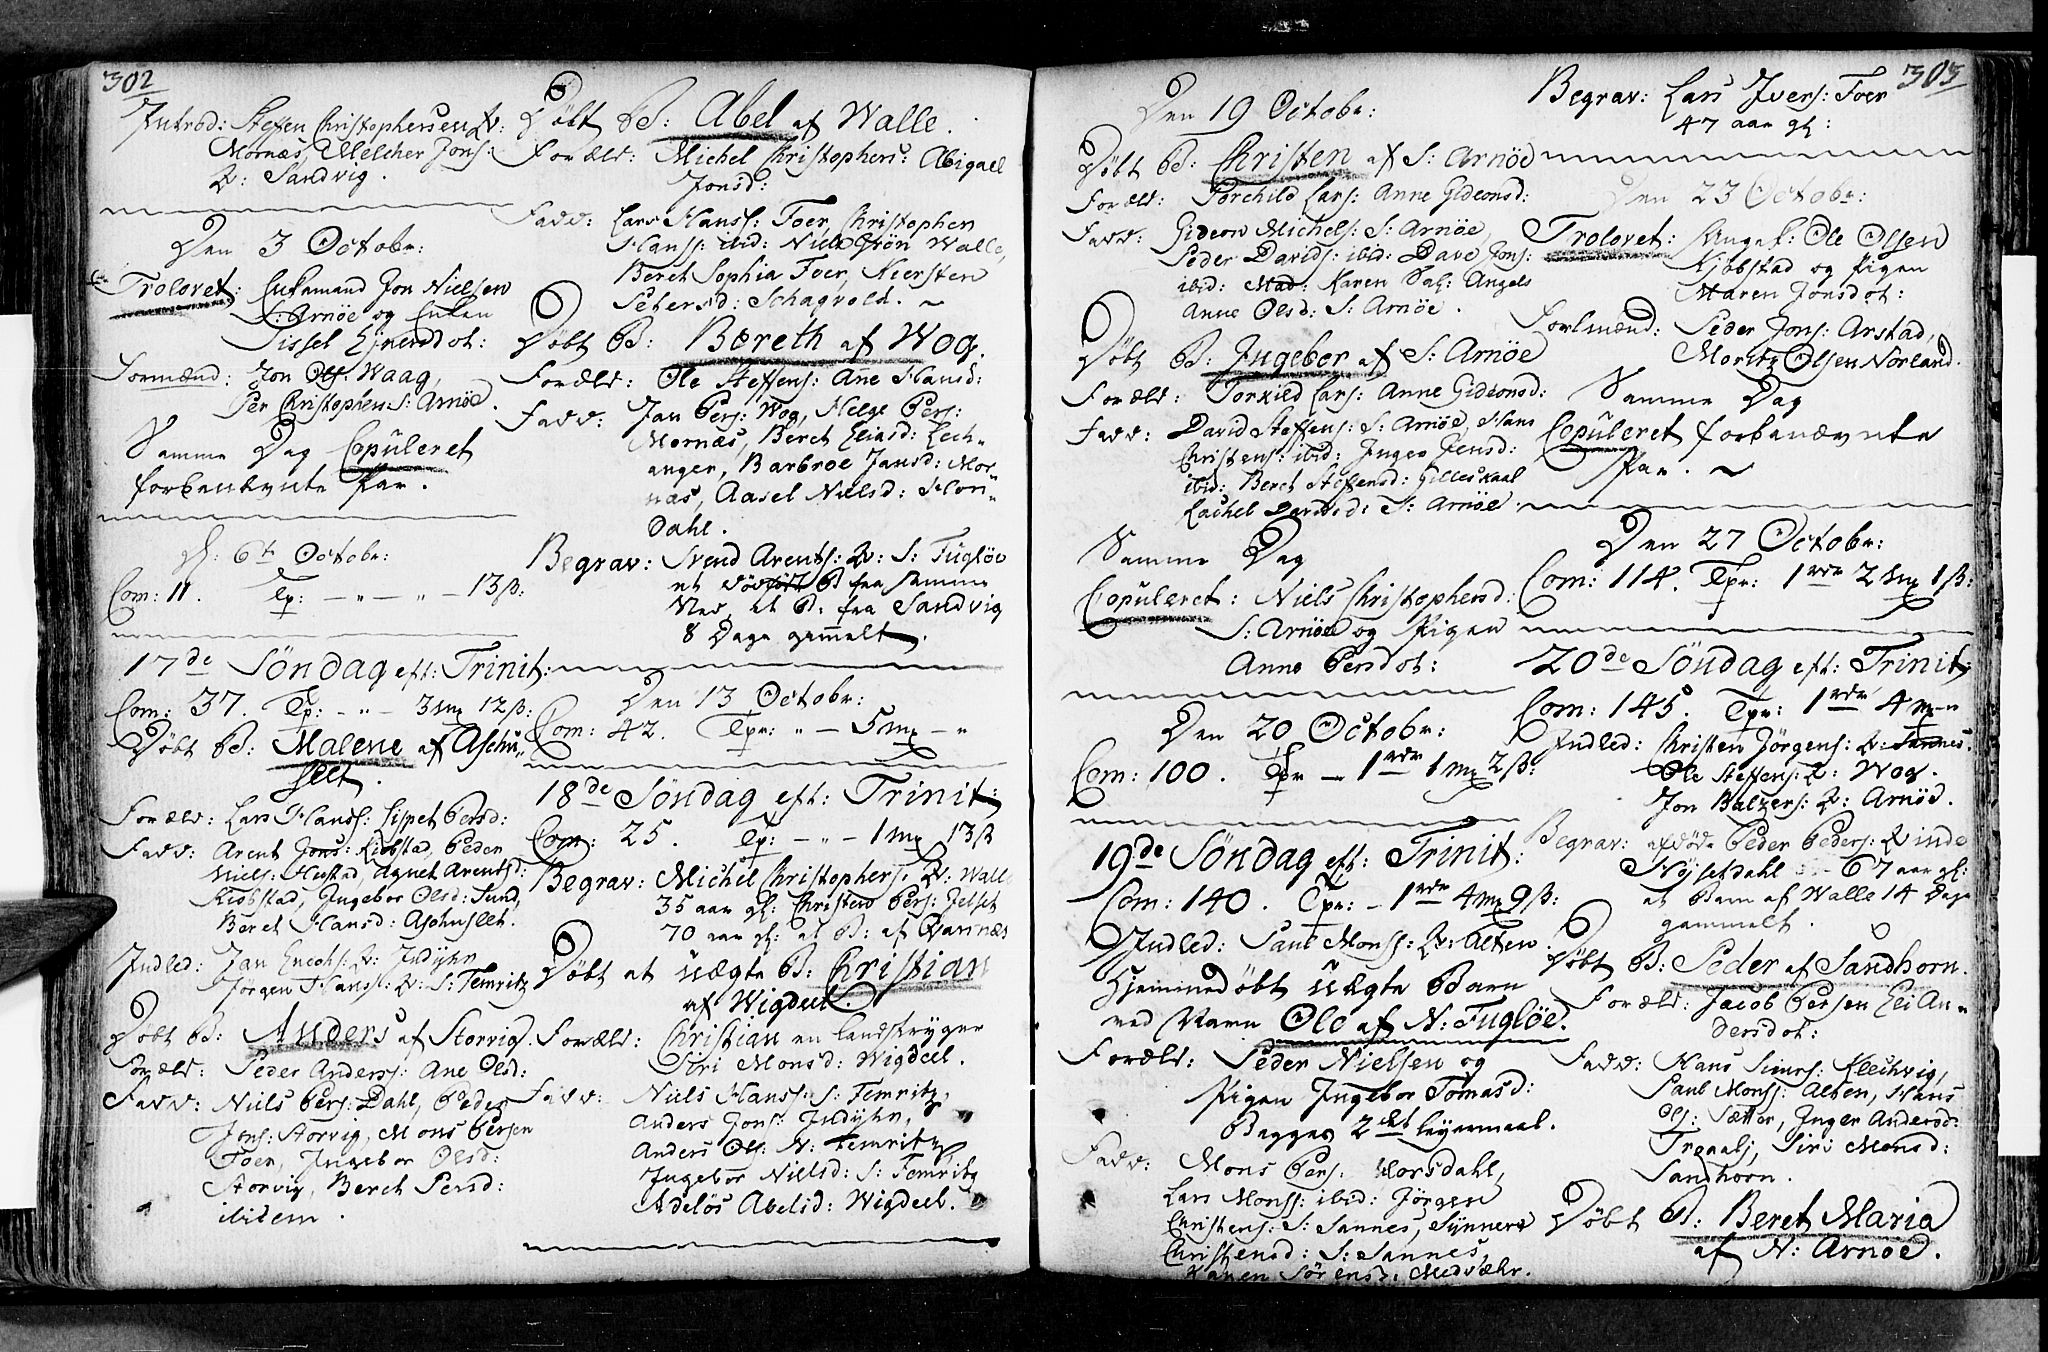 302
Introd: Steffen Christophersen Q:
Mornæs, Melcher Jons:
Q: Sandvig.
Den 3 Octobr:
Trolovet: Enkemand Jon Nielsen
S: Arnöe og Enken
Sissel Ejnersdot:
Formænd: Jon Ols: Waag,
Per Christophers: S: Arnöe.
Samme Dag Copuleret
forbenevnte Par.
d: 6te Octobr:
Com: 11. Tp: - " - " - 13 ß:
17de Söndag eft: Trinit:
Com: 37. Tp: - " - 3 mg 12 ß:
Döbt B: Malene af Aschus
leet.
Foræld: Lars Hanss: Lispet Persd:
Fadd: Arent Jons: Kiobstad, Peder
Niels: Hustad, Agnet Arentsd:
Kiobstad, Ingebor Olsd: Sund,
Beret Hansd: Aschusleet.
Indled: Jan Enochs: Q: Indyhr
Jörgen Hanss: Q: S: Femritz
Döbt B: Anders af Storvig.
Foræld: Peder Anderss: Ane Olsd:
Fadd: Niels Pers: Dahl, Peder
Jons: Storvig, Mons Persen
Foer, Ingebor Olsd:
Storvig, Beret Persd:
ibidem.
Döbt B: Abel af Walle.
Foræld: Michel Christophers: Abigael
Jonsd:
Fadd: Lars Hanss: Foer, Christophen
Hanss: ibid: Niels Grön Walle,
Beret Sophia Foer, Kiersten
Petersd: Schagvold.
Döbt B: Bereth af Wog.
Foræld: Ole Steffens: Ane Hansd:
Fadd: Jan Pers: Wog, Helge Pers:
Mornæs, Beret Eliasd: Lech-
anger, Barbroe Jansd: Mor
næs, Aasel Nielsd: Hon-
Dahl.
Begrav: Svend Arents: Q: S: Fugløe
et dödfödt B fra samme
Sted, et B: fra Sandvig
8 Dage gammelt.
Den 13 Octobr:
Com: 42. Tpr: " - 5 mg - "
18de Söndag eft: Trinit:
Com: 25. Tp: - " - 1 mg 13 ß
Begrav: Michel Christophers: Q: Walle
35 aar gl: Christen Pers: Jelset
70 aar gl: et B: af Qvarnæs
Döbt et uægte B: Christian
af Wigdeel.
Foræld: Christian en Landstryger
Siri Monsd: Wigdeel.
Fadd: Niels Hanss: S: Femritz,
Anders Jons: Indyhr,
Anders Ols: N: Femritz,
Ingebor Nielsd: S: Femritz
Adelös Abelsd: Wigdeel.
303
Den 19 Octobr:
Döbt B: Christen af S: Arnöe
Foræld: Torchild Lars: Anne Gideonsd:
Fadd: Gideon Michels: S: Arnöe,
Peder Davids: ibid: Dave Jons:
ibid: Mad: Karen Sal: Angels
Anne Olsd: S: Arnöe.
Döbt B: Ingebor af S: Arnöe
Foræld: Torkild Lars: Anne Gideonsd:
Fadd: David Steffens: S: Arnöe, Hans
Christens: ibid: Inger Jensd:
ibid: Beret Steffensd: Gilleskaal
Rachel Davidsd: S: Arnöe.
Samme Dag
Copuleret: Niels Christophersd:
S: Arnöe og Pigen
Anne Persdot:
Den 20 Octobr:
Com: 100. Tpr - 1 rdr 1 mg 2 ß:
19de Söndag eft: Trinit:
Com: 140. Tpr: - 1 rdr 4 mg 9 ß:
Indled: Paul Monss: Q: Alten.
Hjemmedöbt uægte Barn
ved Navn Ole af N: Fugløe.
Foræld: Peder Nielsen og
Pigen Ingebor Tomasd:
Begges 2det Leyermaal.
Fadd: Mons Pers: Morsdahl,
Lars Monss: ibid: Jörgen
Christens: S: Sannes, Synnerø
Christensd: S: Sannes,
Karen Sörensd: Medvær.
Begrav: Lars Ivers: Foer
47 aar gl:
Den 23 Octobr:
Trolovet: Ungk: Ole Olsen
Kjöbstad og Pigen
Maren Jonsdot:
Forlmænd: Peder Jons: Arstad,
Moritz Olsen Norland.
Samme Dag
Copuleret forbenævnte
Par.
Den 27 Octobr:
Com: 114. Tpr: 1 rdr 2 mg 1 ß:
20de Söndag eft: Trinit:
Com: 145. Tpr: 1 rdr 4 m - "
Indled: Christen Jörgens: Q: Sannes.
Ole Steffens: Q: Wog.
Jon Balzers: Q: Arnöe.
Begrav: afdöde Peder Peders: Qvinde
Nÿsetdahl - 67 aar gl:
et Barn af Walle 14 Dage
gammelt.
Döbt B: Peder af Sandhorn.
Foræld: Jacob Persen Eli An-
dersdot:
Fadd: Hans Simens: Klechvig,
Paul Monss: Alten, Hans
Ols: Sætter, Inger Andersd:
Siri Monsd:
Sandhorn.
Döbt B: Beret Maria
af N: Arnoe.